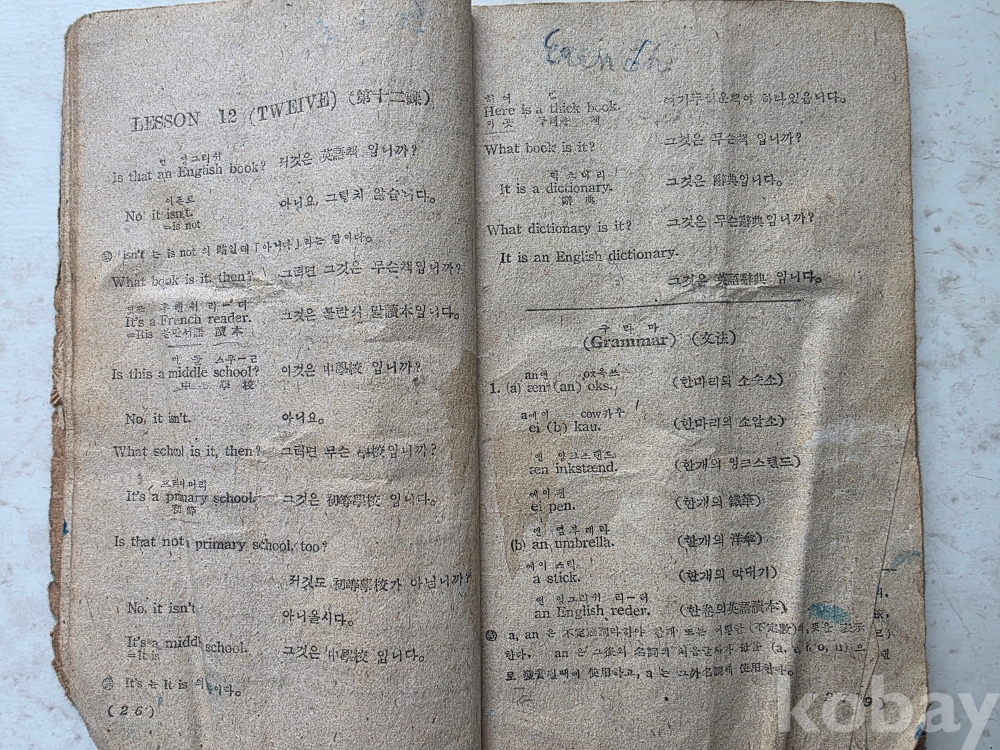 LESSON 12 (TWEIVE) (第十二課)
언 잉그리쉬
Is that an English book? 저것은 英語책 입니까?
이즌트
No it isn't. 아니요, 그렇치 않습니다。
=is not
isn't 는 is not 의 略일테「아니다」라는 말이다。
What book is it, then? 그러면 그것은 무슨책입니까?
후렌쉬 리ー더
It's a French reader. 그것은 불란서 讀本입니다。
=It is 불란서語 讀本
미들 스쿠ー리
Is this a middle school? 이것은 中學校 입니까?
中 學 校
No, it isn't. 아니요。
What school is it, then? 그러면 무슨 學校입니까?
프라이머리
It's a prmary school. 그것은 初等學校 입니다。
初等
Is that not primary school, too?
저것도 初等學校가 아닙니까?
No, it isn't 아니올시다。
It's a middl school. 그것은 中學校 입니다。
=It is
It's 는 It is 의 이다。
(26)
Here is a thick book. 여기두터운책이 하나있읍니다。
이곳 두터운 책
What book is it? 그것은 무슨책 입니까?
딕슈너리
It is a dictionary. 그것은 辭典입니다。
辭典
What dictionary is it? 그것은 무슨辭典입니까?
It is an English dictionary.
그것은 英語辭典 입니다。
구라마
(Grammar) (文法)
an앤 ox옥쓰
1. (a) æn (an) oks. (한마리의 소숫소)
a에이 cow카우
ei (b) kau. (한마리의 소암소)
앤 잉크스탠드
æn inkstænd. (한개의 잉크스탠드)
에이 펜
ei pen. (한개의 鐵筆)
앤 엄부레라
(b) an umbrella. (한개의 洋傘)
에이 스틱
a stick. (한개의 막대기)
앤 잉그리쉬 리ー더
an English reder. (한卷의英語讀本)
a, an 은 不定冠詞 한개 또는 어떠한 (不定數)의 뜻을 表示
한다, an 은 그後의 名詞의 처음글자가 (a, e, i, o, u) 으
로 發音될때에 使用하고, a 는 그外名詞에 使用한다。
kobay